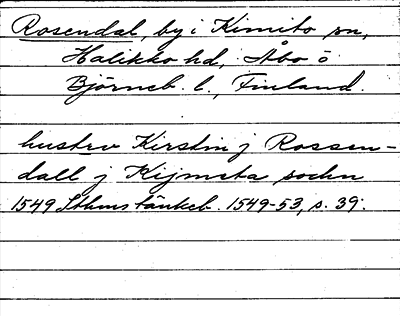 Rosendal, by i Kimito sn,
Halikko hd, Åbo o
Björneb. l., Finland.
hustrv Kirstin j Rossen-
dall j Kijmeta sochn
1549 Sthms tänkeb. 1549-53, s. 39.